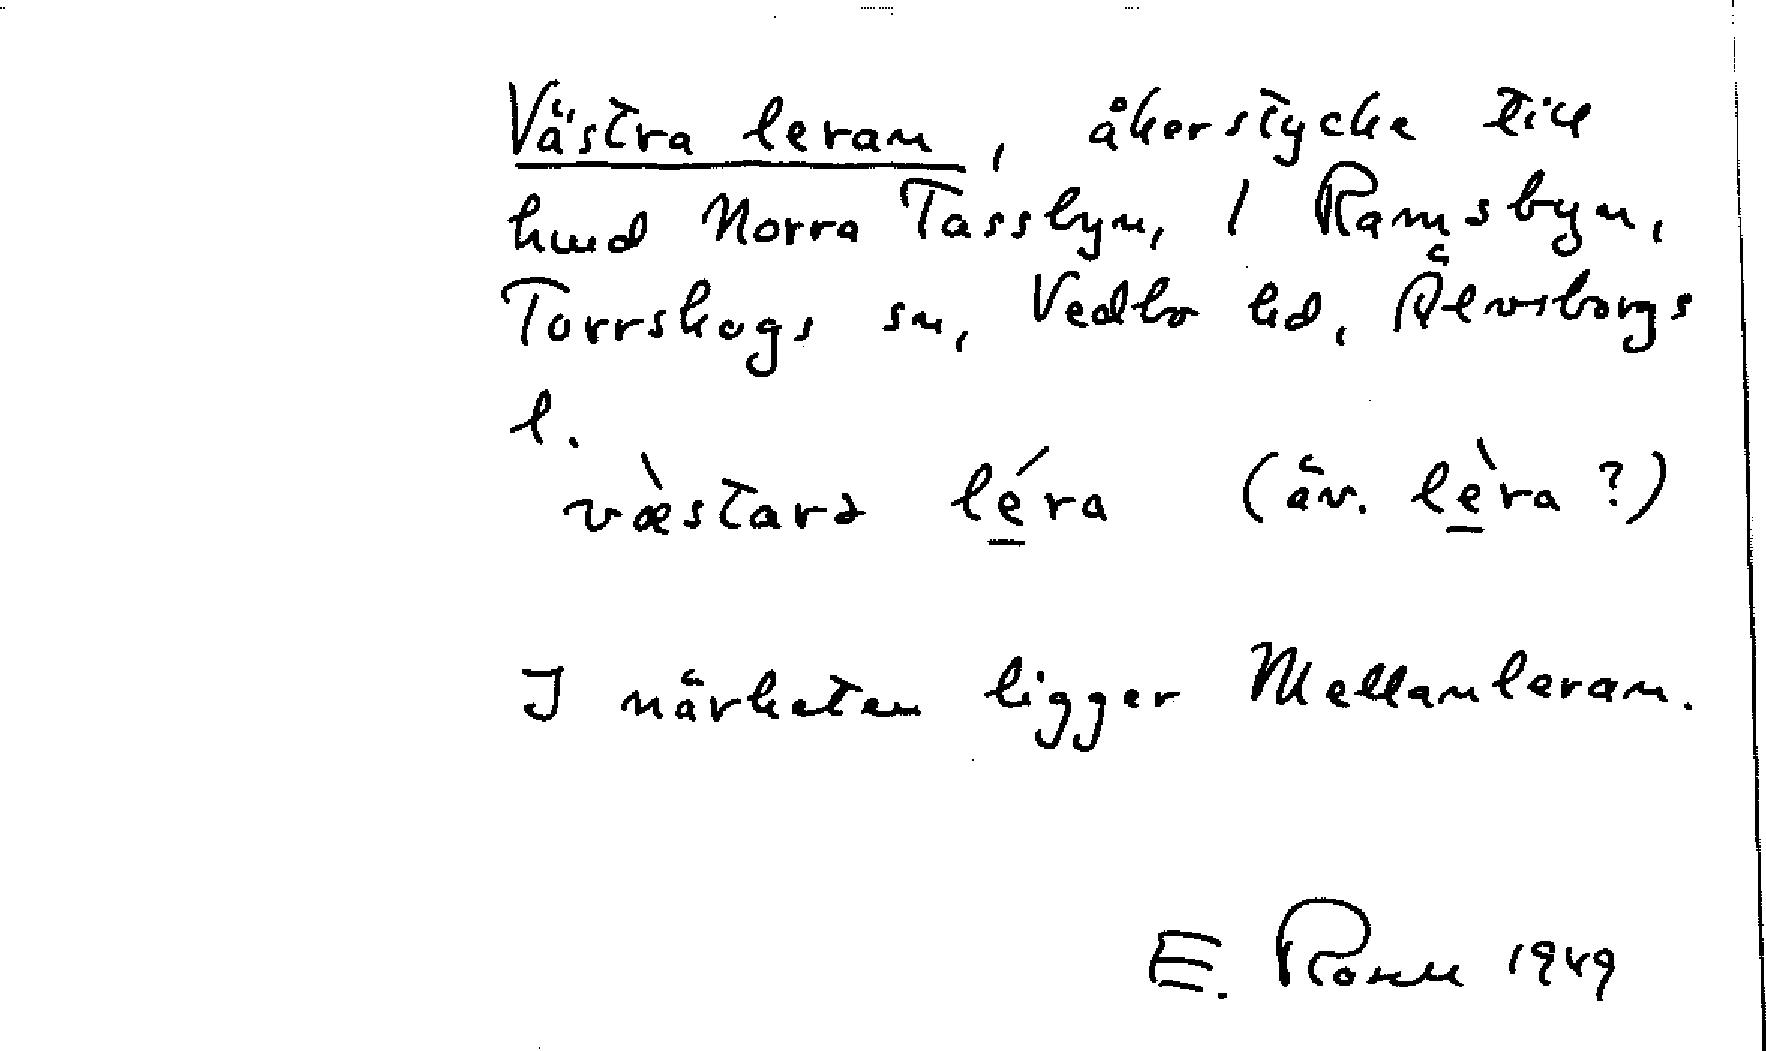 Västra leran, åkerstycke till
hmd Norra Tassbyn, 1 Ramsbyn,
Torrskogs sn, Vedbo hd, Älvsborgs
l.
væ̀starə lé̱ra (äv. lè̱ra ?)
I närheten ligger Mellanleran.
E. Rosell 1949